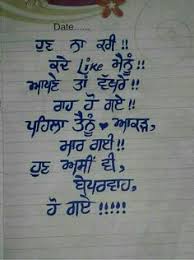 Date......
ਹੁਣ ਨਾ ਕਰੀ !!
ਕਦੇ Like ਮੈਨੂੰ !!
ਆਪਣੇ ਤਾਂ ਵੱਖਰੇ
ਰਾਹ ਹੋ ਗਏ !!
ਪਹਿਲਾ ਤੈਨੂੰ ਆਕੜ,
ਮਾਰ ਗਈ !!
ਹੁਣ ਅਸੀਂ ਵੀ,
ਬੇਪਰਵਾਹ,
ਹੋ ਗਏ !!!!!